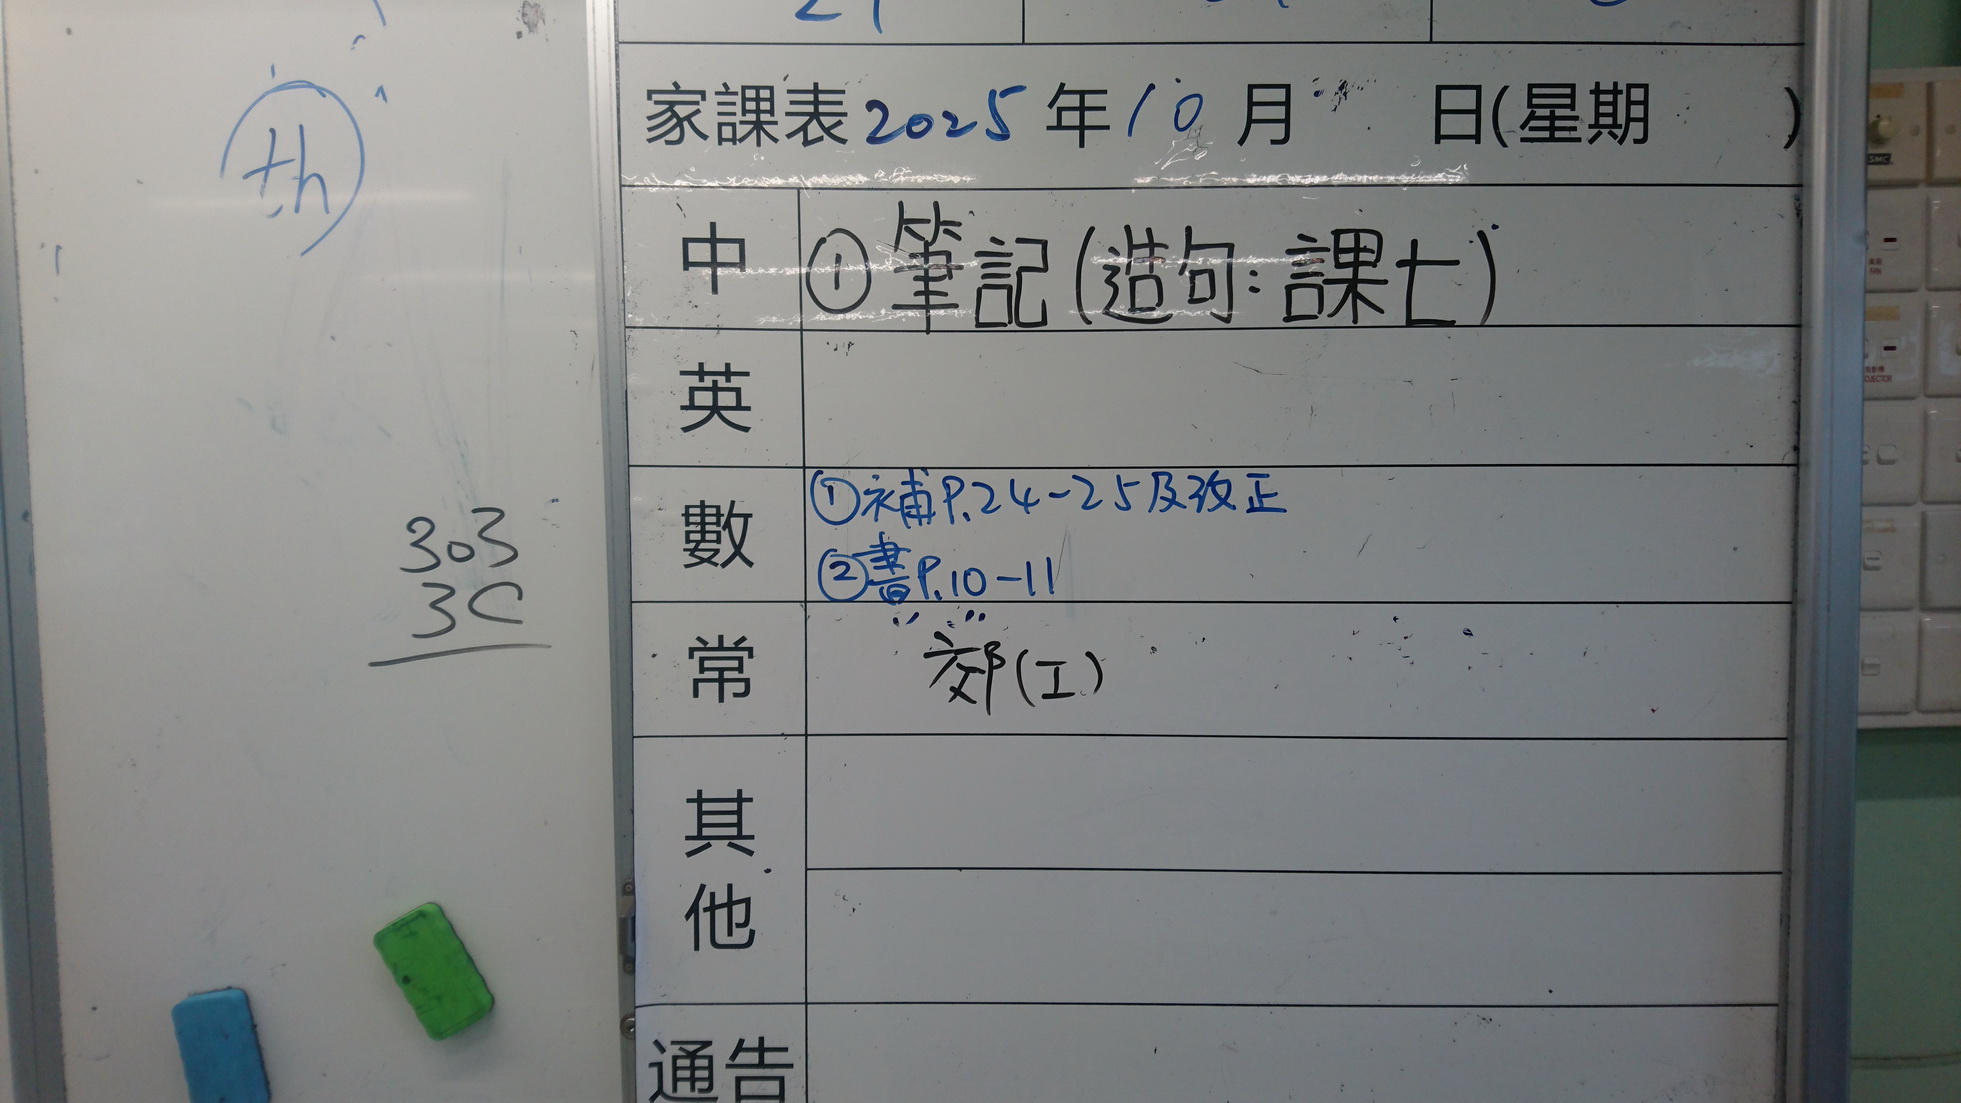 th
303
3C
家課表2025年10月 日(星期 )
中 ①筆記(造句:課七)
英
數 ①補P.24-25及改正
②書P.10-11
常 郊(工)
其他
通告